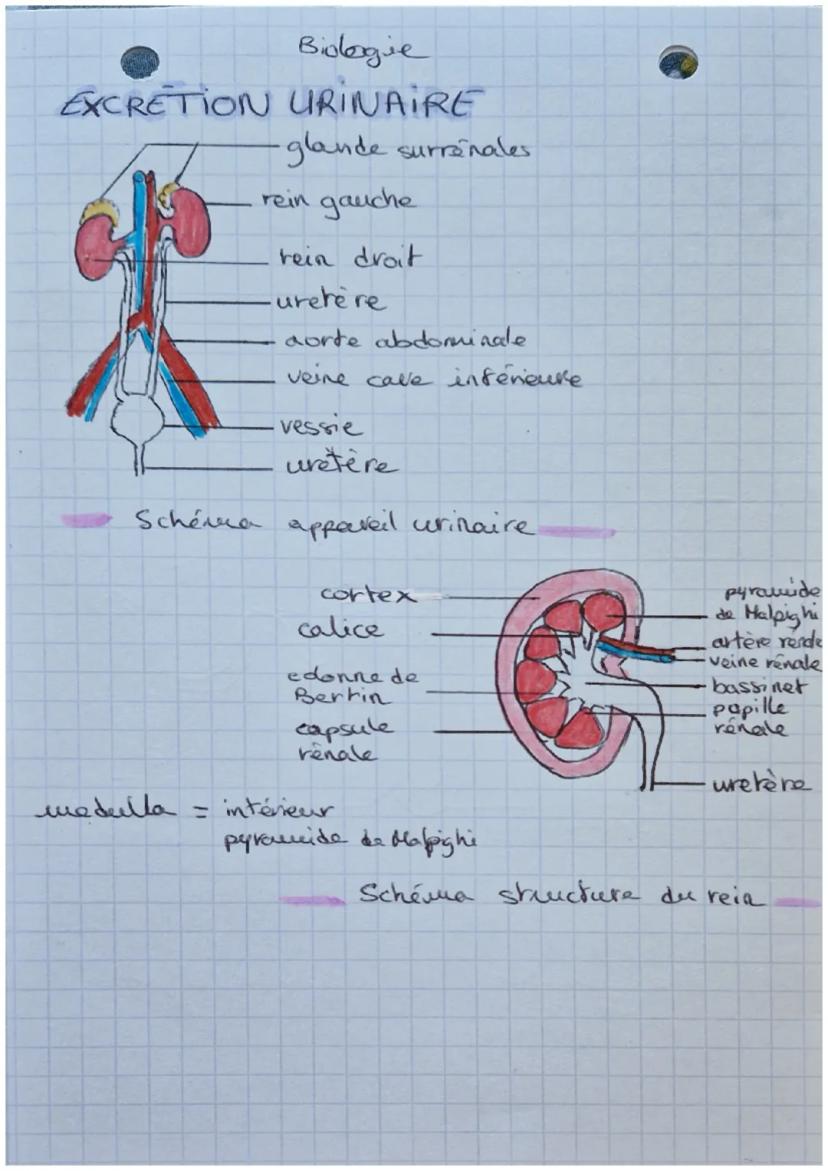 Biologie
EXCRÉTION URINAIRE
glande surrénales
rein gauche
rein droit
uretère
aorte abdominale
veine cave inférieure
vessie
uretère
Schéma appareil urinaire
cortex
calice
colonne de
Bertin
capsule
rénale
pyramide
de Malpighi
artère rénale
veine rénale
bassinet
papille
rénale
uretère
medulla = intérieur
pyramide de Malpighi
Schéma structure du rein